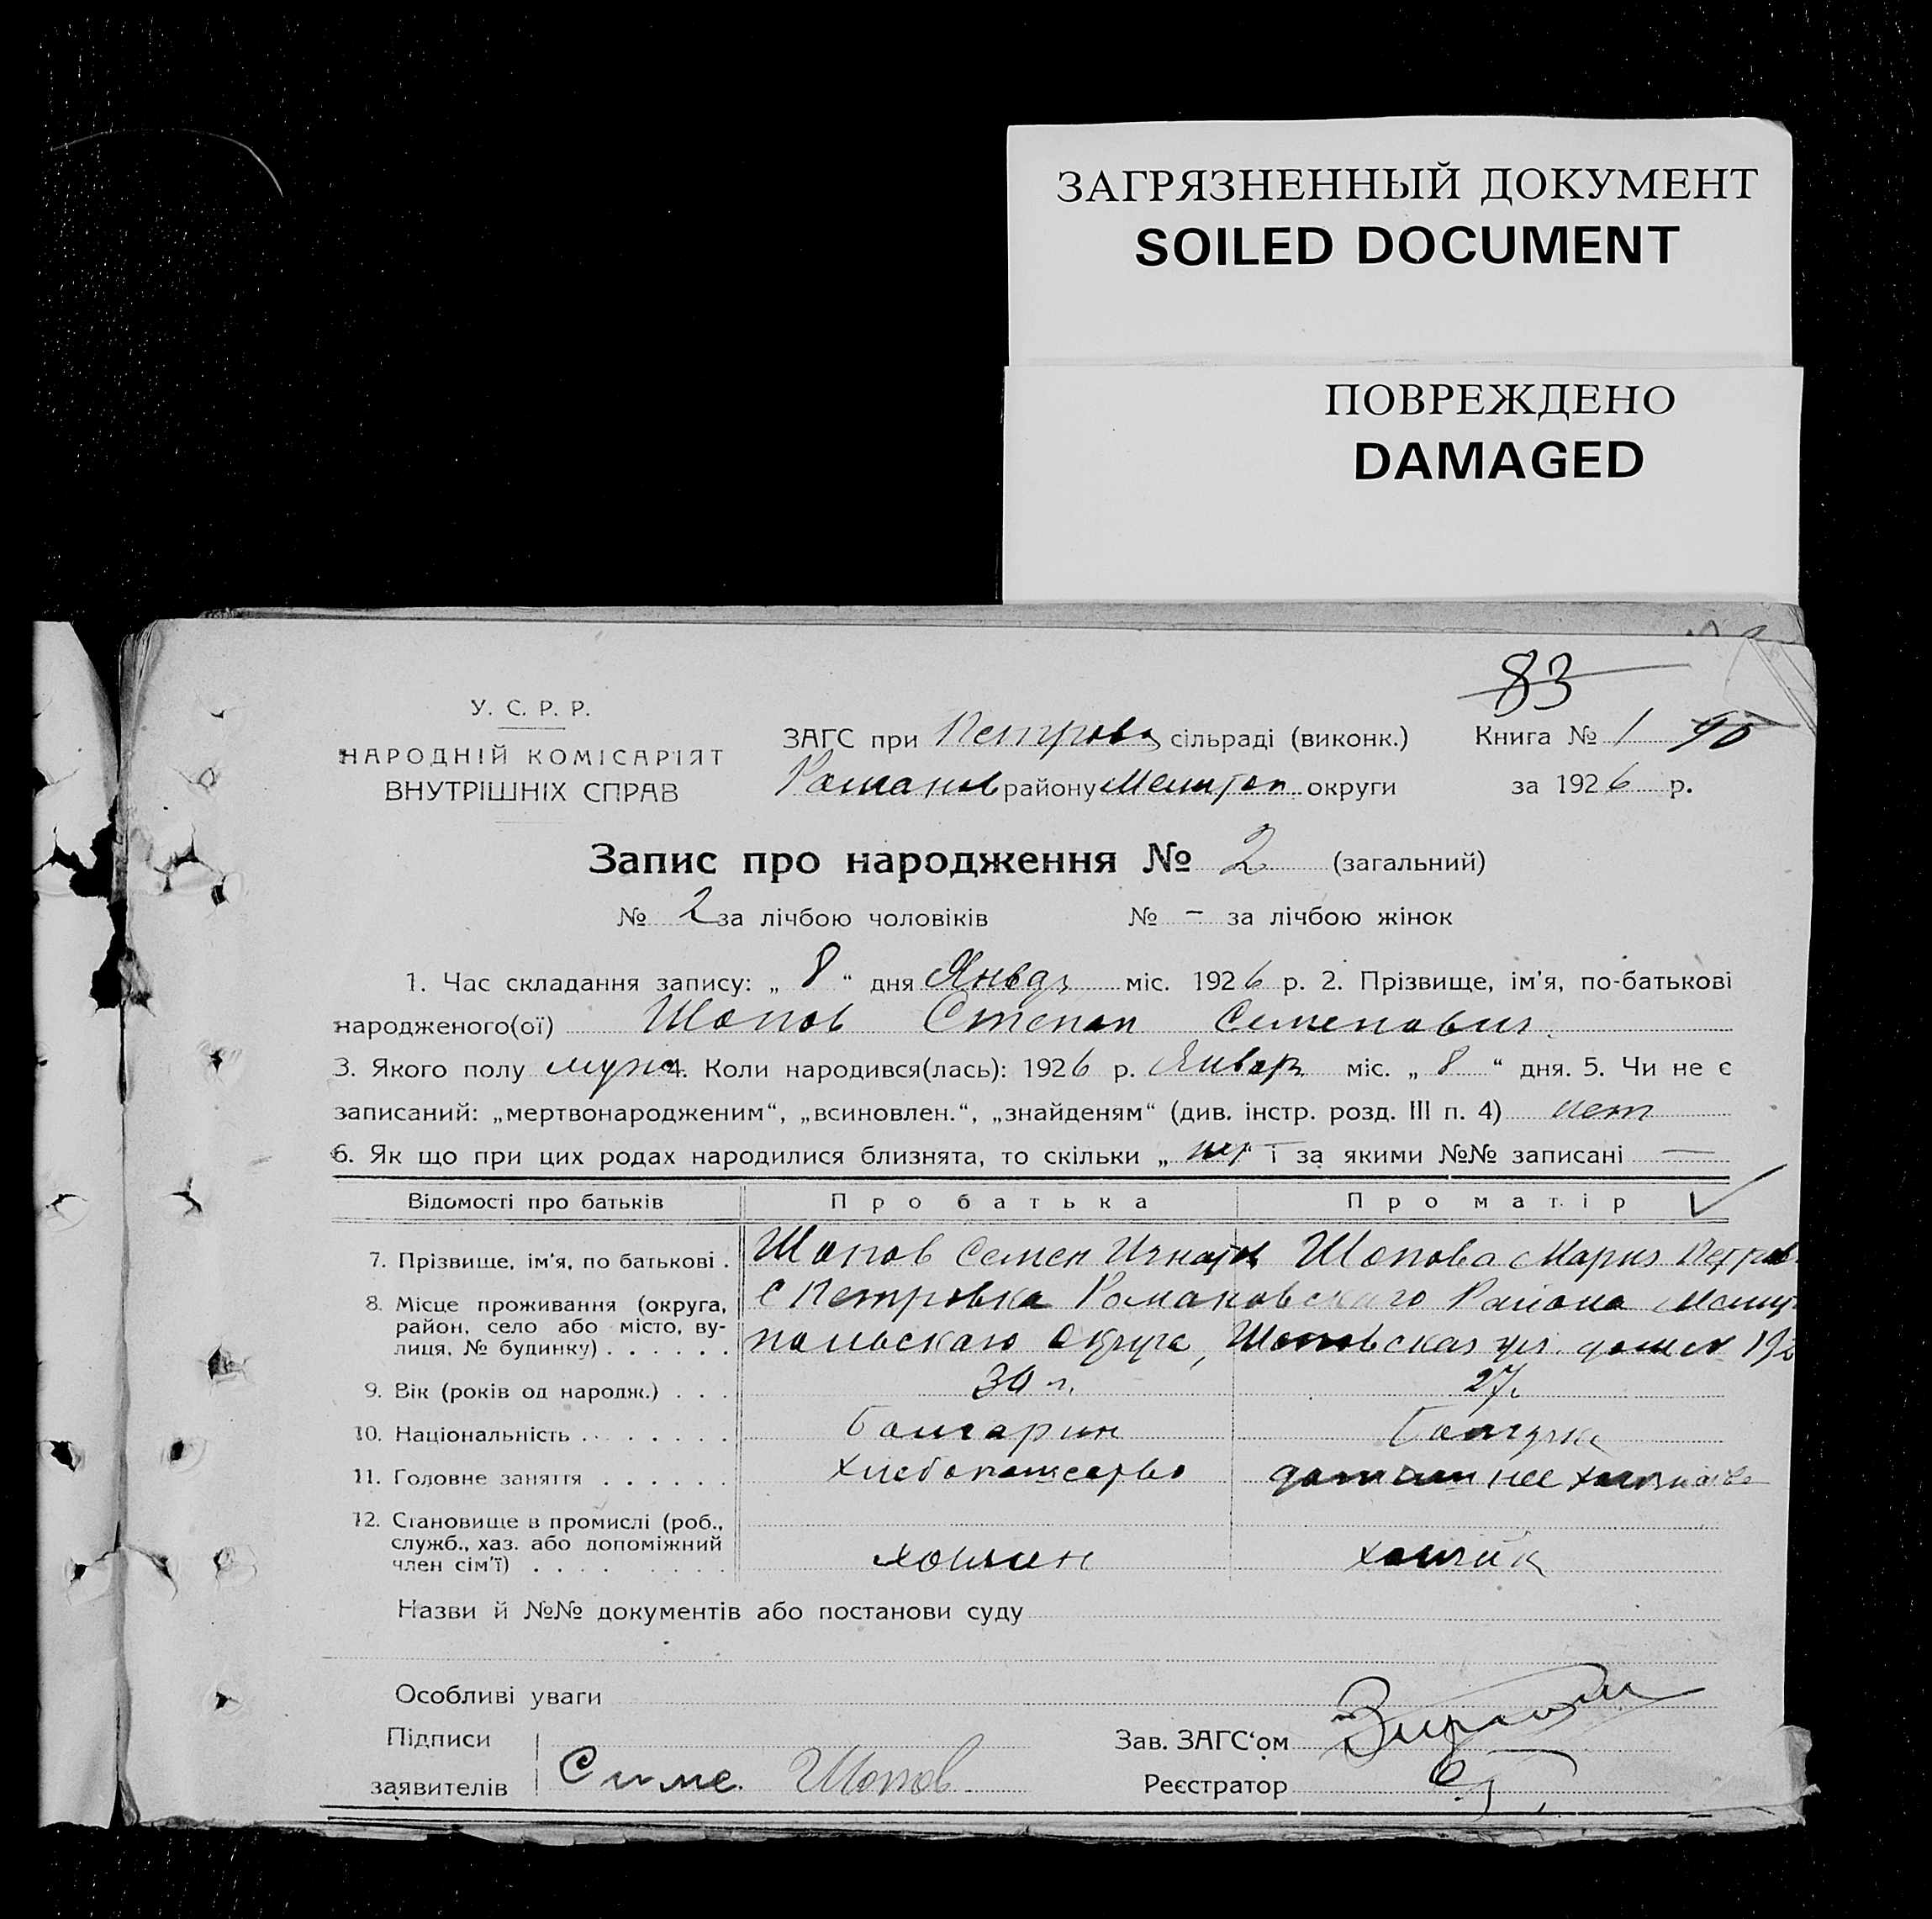 ЗАГРЯЗНЕННЫЙ ДОКУМЕНТ
SOILED DOCUMENT
ПОВРЕЖДЕНО
DAMAGED
83
У. С. Р. Р.
НАРОДНІЙ КОМІСАРІЯТ
ВНУТРІШНІХ СПРАВ
ЗАГС при Петровс сільраді (виконк.)
Романов району Мелитоп. округи
Книга № 1
за 1926 р.
Запис про народження № 2 (загальний)
№ 2 за лічбою чоловіків № – за лічбою жінок
1. Час складання запису: „ 8 “ дня Январ міс. 1926 р. 2. Прізвище, ім'я, по-батькові
народженого(ої) Шопов Степан Семенович
3. Якого полу муж 4. Коли народився(лась): 1926 р. Январ міс. „ 8 “ дня. 5. Чи не є
записаний: „мертвонародженим“, „всиновлен.“, „знайденям“ (див. інстр. розд. III п. 4) нет
6. Як що при цих родах народилися близнята, то скільки „ нет “ і за якими №№ записані —
Відомості про батьків Про батька Про матір
7. Прізвище, ім'я, по батькові . Шопов Семен Игнатов Шопова Мария Петров
8. Місце проживання (округа, район, село або місто, вулиця, № будинку) . . . . . . С Петровка Романовскаго Района Мелитопольскаго Округа, Шоповская ул. дом №
9. Вік (років од народж.) . . . 30 л. 27.
10. Національність . . . . . . . . Болгарин Болгарка
11. Головне заняття . . . . . . Хлебопашество домашнее хозяйство
12. Становище в промислі (роб., служб., хаз. або допоміжний член сім'ї) . . . . . . . . . хозяин хозяйк
Назви й №№ документів або постанови суду
Особливі уваги
Підписи
заявителів Шопов
Зав. ЗАГС'ом
Реєстратор